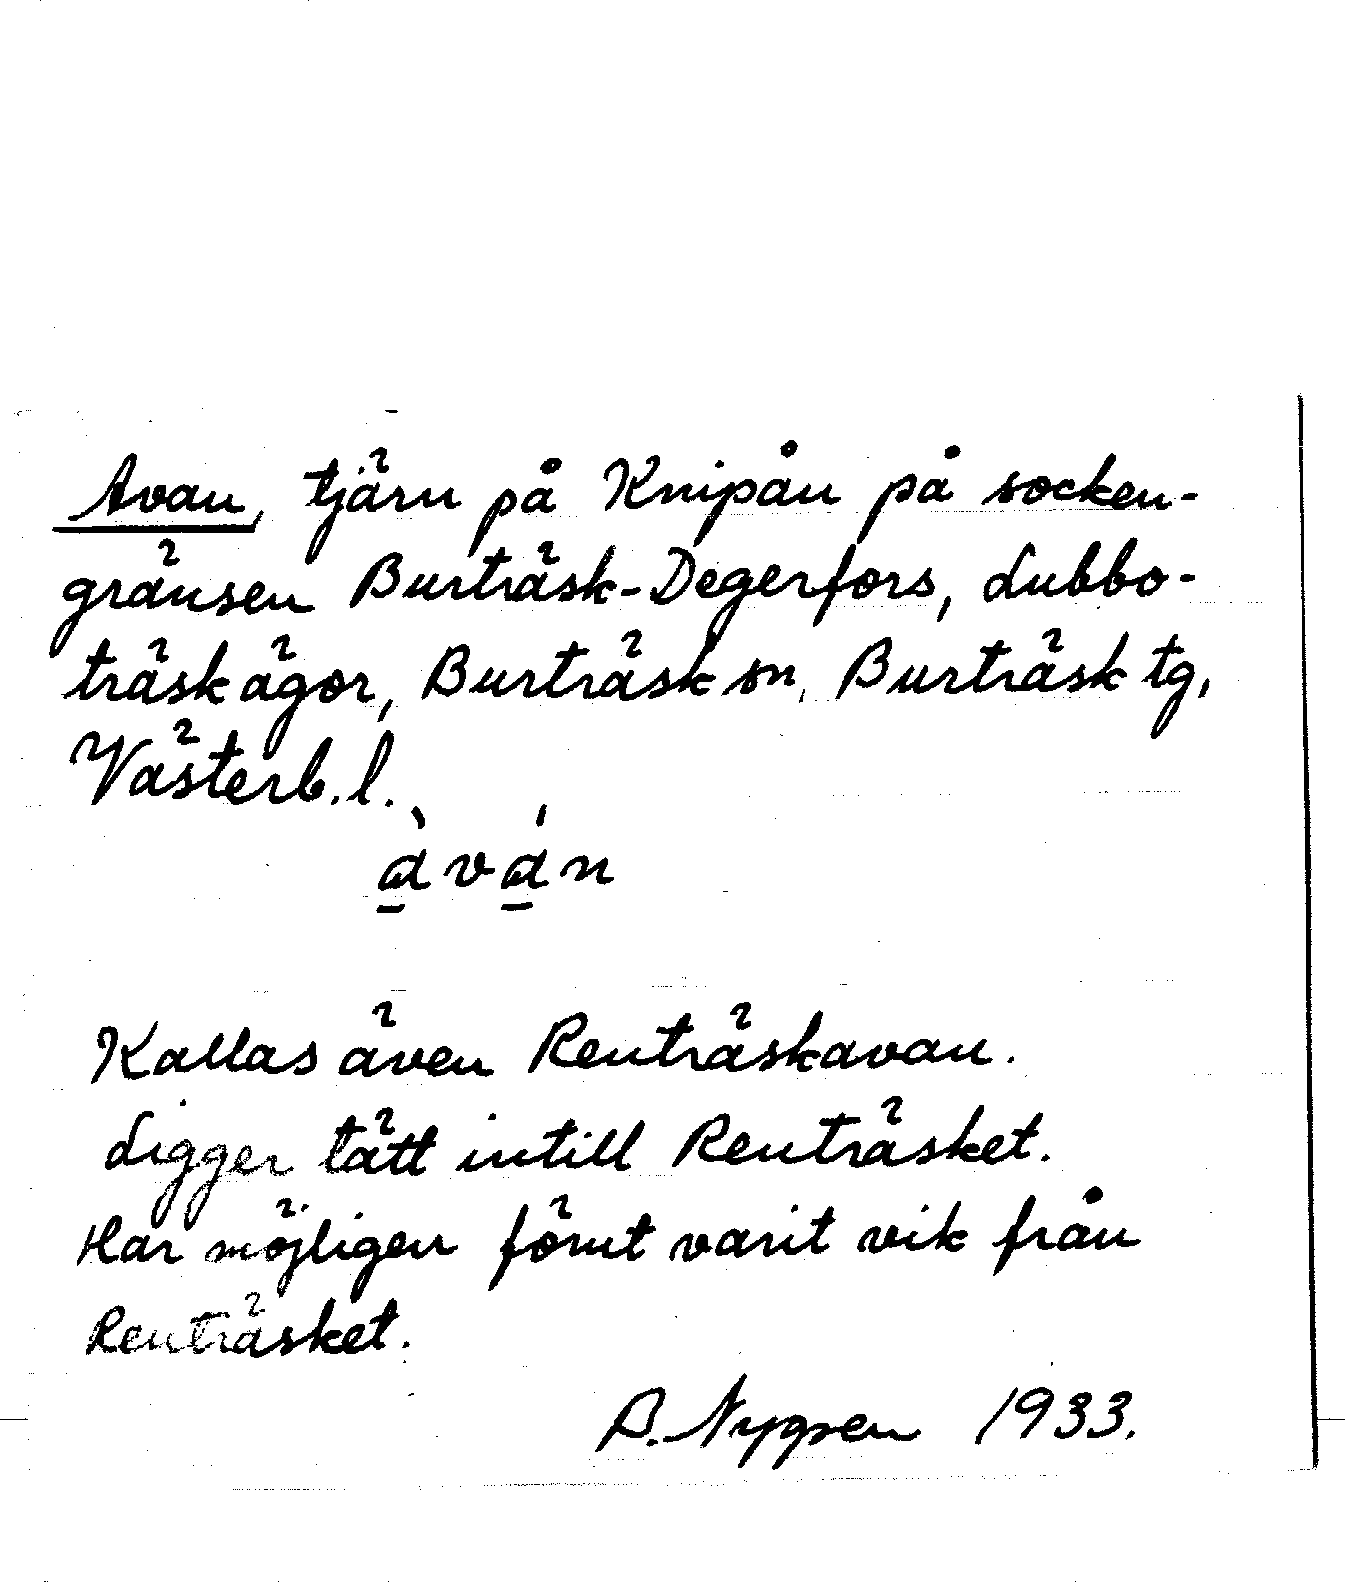 Avan, tjärn på Knipån på socken-
gränsen Burträsk-Degerfors, Lubbo-
träsk ägor, Burträsk sn, Burträsk tg,
Västerb. l.
à̠vá̠n
Kallas även Renträskavan.
Ligger tätt intill Renträsket.
Har möjligen förut varit vik från
Renträsket.
A. Nygren 1933.